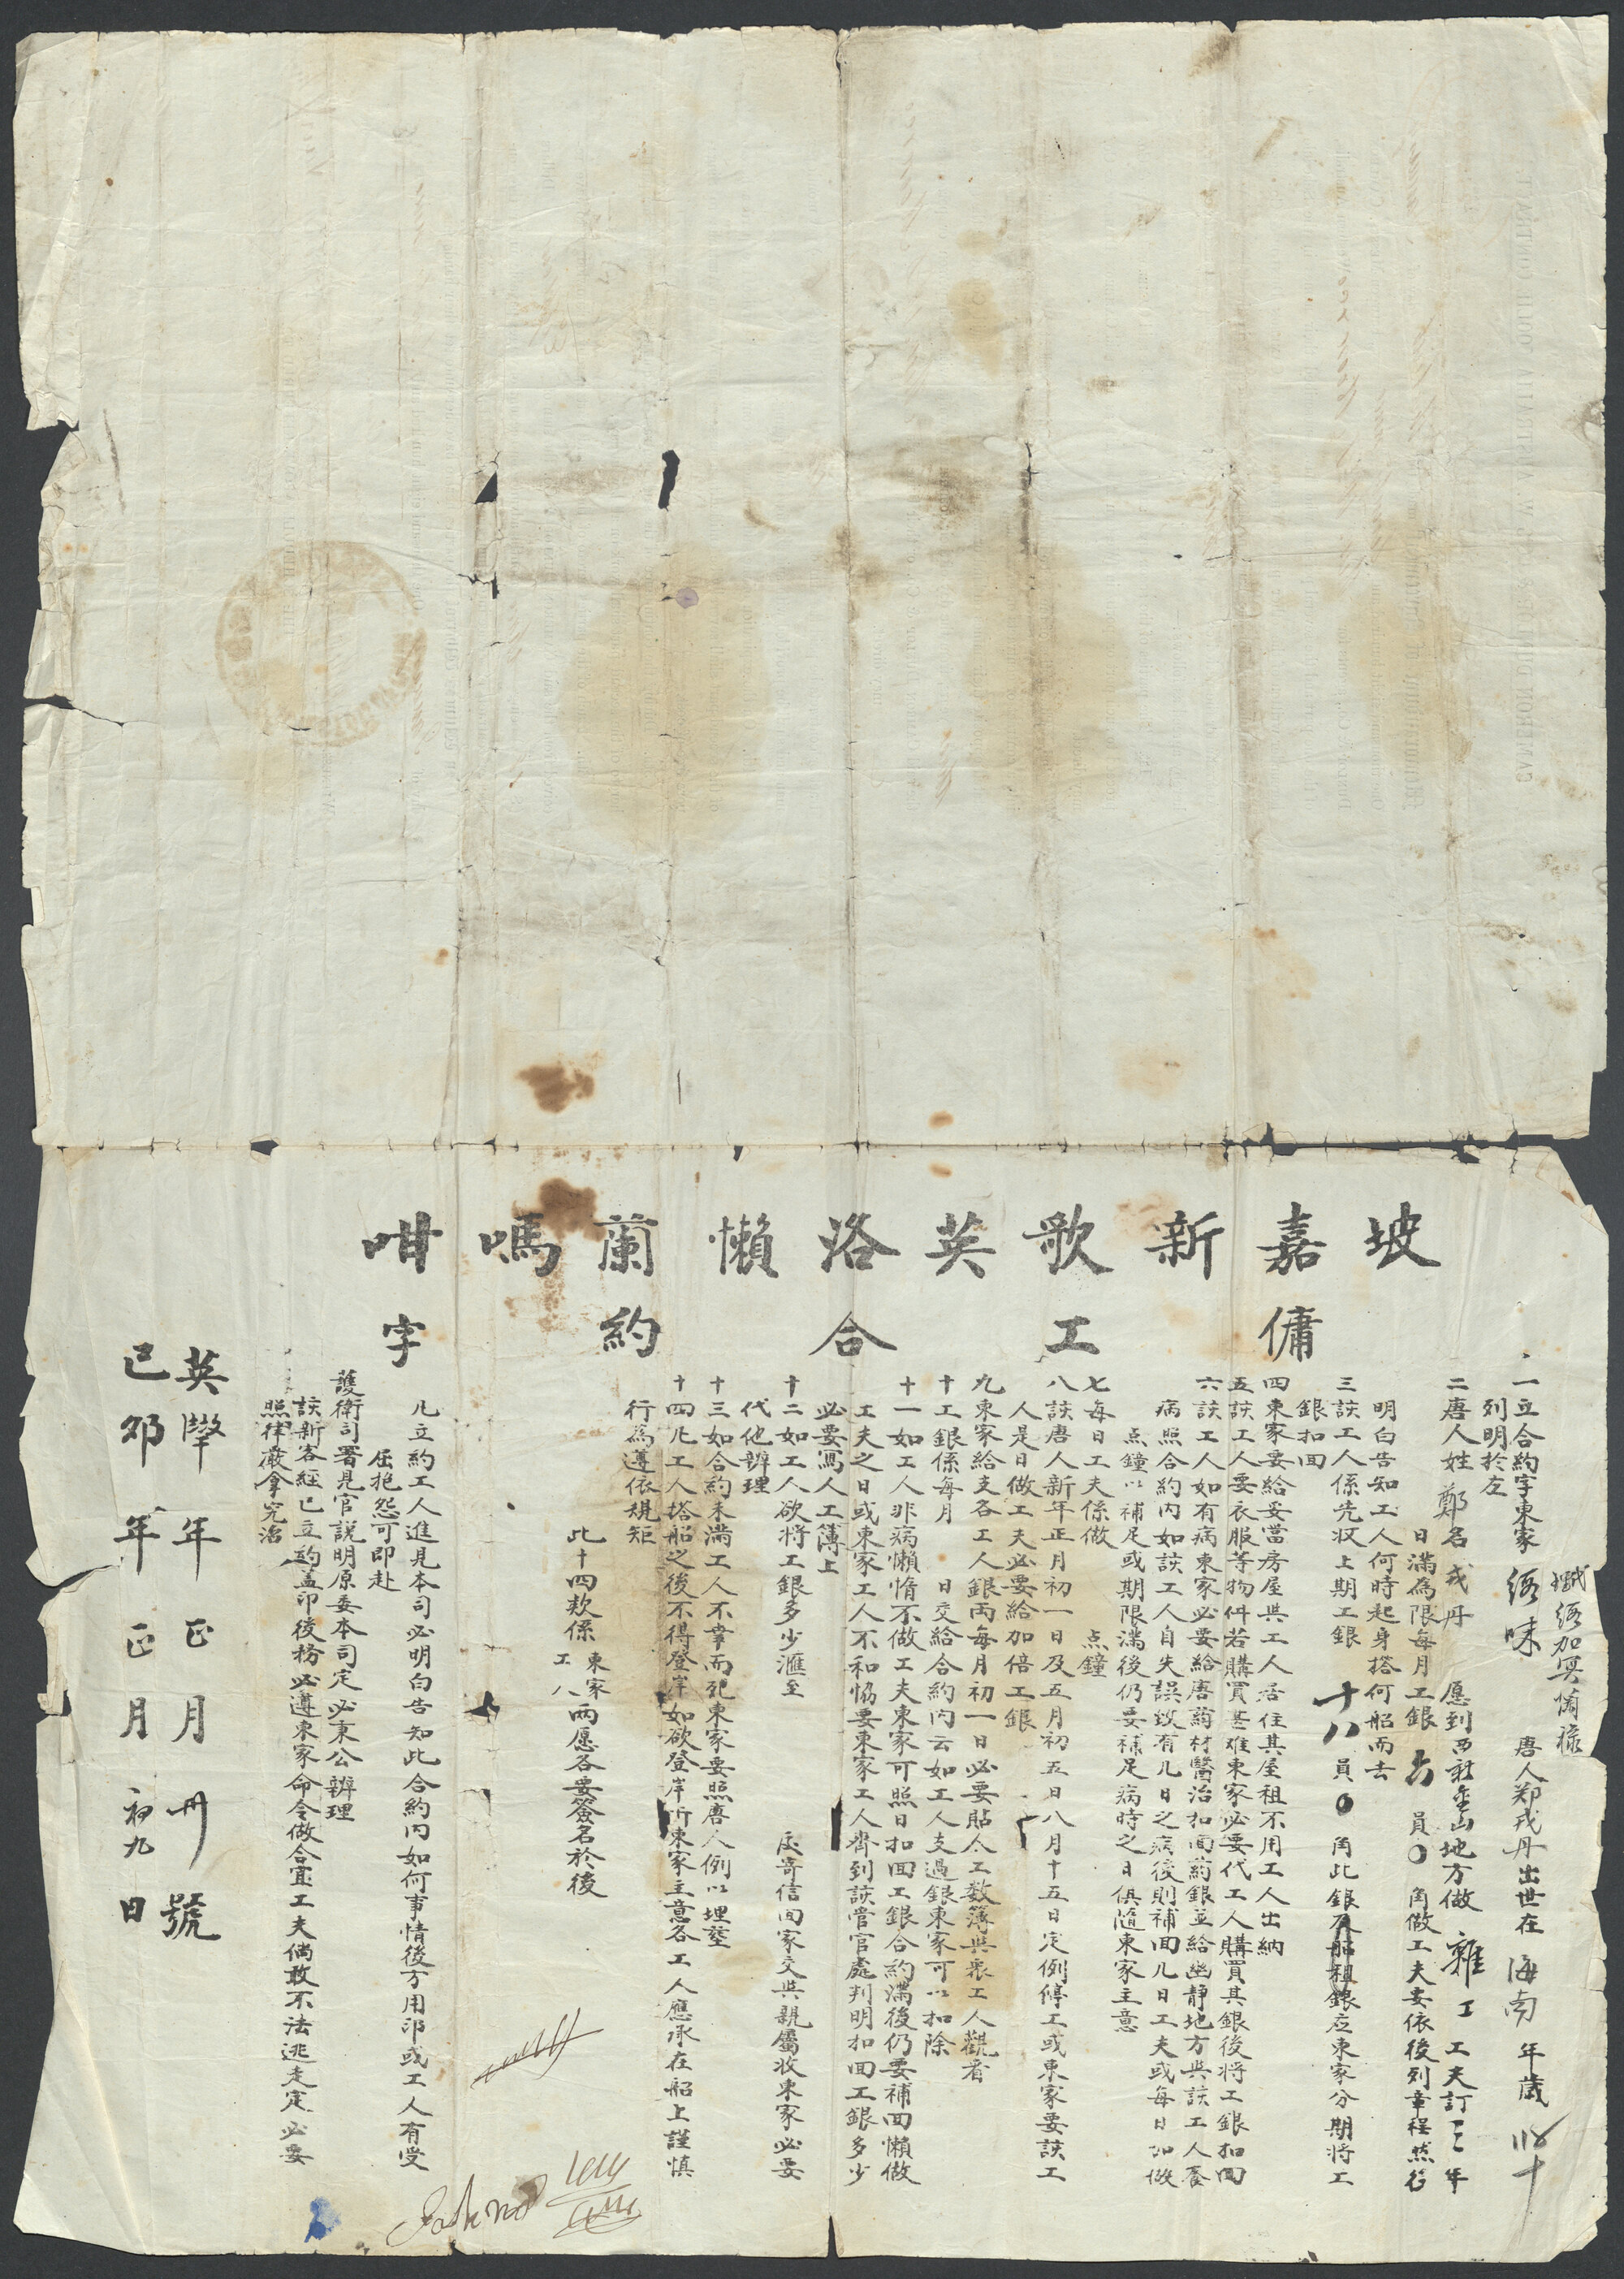 坡嘉新歌英洛懶蘭嗎咁
傭工合約字
一立合約字東家
唐人鄭戎丹出世在海南年歲
列明於左
二唐人姓鄭名戎丹愿到西社金山地方做雜工工夫訂三年
日滿為限每月工銀六員〇角做工夫要依後列章程然後
明白告知工人何時起身搭何船而去
三該工人係先收上期工銀十八員〇角此銀及船租銀应東家分期將工
銀扣回
四東家要給妥當房屋與工人居住其屋租不用工人出納
五該工人要衣服等物件若購買甚难東家必要代工人購買其銀後將工銀扣回
六該工人如有病東家必要給唐葯材醫治扣回葯銀並給幽静地方與該工人養
病照合約內如該工人自失誤致有几日之病後則補回几日工夫或每日加做
点鐘以補足或期限滿後仍要補足病時之日俱隨東家主意
七每日工夫係做 点鐘
八該唐人新年正月初一日及五月初五日八月十五日定例停工或東家要該工
人是日做工夫必要給加倍工銀
九東家給支各工人銀両每月初一日必要貼人工数簿與衆工人觀看
十工銀係每月 日交給合約內云如工人支過銀東家可以扣除
十一如工人非病懶惰不做工夫東家可照日扣回工銀合約滿後仍要補回懶做
工夫之日或東家工人不和恊要東家工人齊到該管官處判明扣回工銀多少
必要寫人工簿上
十二如工人欲將工銀多少滙至 處寄信回家交與親屬收東家必要
代他辦理
十三如合約未滿工人不幸而死東家要照唐人例以埋塟
十四凡工人搭船之後不得登岸如欲登岸所東家主意各工人應承在船上謹慎
行為遵依規矩
此十四款係東家工人両愿各要簽名於後
凡立約工人進見本司必明白告知此合約內如何事情後方用印或工人有受
屈抱怨可即赴
護衛司署見官説明原委本司定必秉公辦理
該新客經已立約盖印後務必遵東家命令做合宜工夫倘敢不法逃走定必要
照律嚴拿究治
英 年正月卅號
己卯年正月初九日